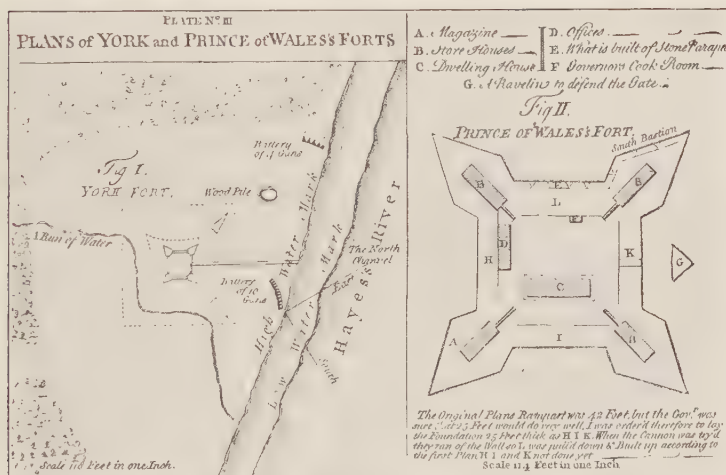 PLATE Nº III
PLANS of YORK and PRINCE of WALES's FORTS
Battery
of 4 Guns
Fig I.
YORK FORT.
Wood Pile
A Run of Water
Battery
of 10
Guns
High Water Mark
Low Water Mark
The North
Channel
East
South
Hayes's River
Scale 110 Feet in one Inch.
A. Magazine
B. Store Houses
C. Dwelling House
D. Offices
E. What is built of Stone Parapt
F Governors Cook Room
G. A Ravelin to defend the Gate
Fig II.
PRINCE OF WALES'S FORT.
South Bastion
B
E
B
L
F
D
H
K
G
C
A
I
B
The Original Plans Rampart was 42 Feet, but the Govr. was
sure yt. at 25 Feet would do very well, I was order'd therefore to lay
the Foundation 25 Feet thick as H I K. When the Cannon was try'd
they ran of the Wall so L was pull'd down & Built up according to
the first Plan H I and K not done yet
Scale 114 Feet in one Inch